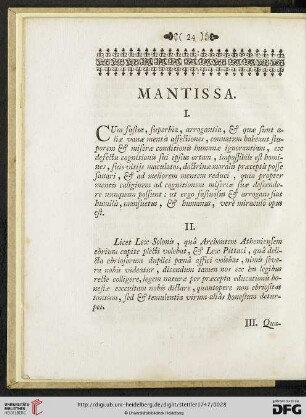 ( 24 )
MANTISSA.
I.
CUm fastus, superbia, arrogantia, & quæ sunt a-
liæ vanæ mentis affectiones, connatam habeant stu-
porem & miseræ conditionis humanæ ignorantiam, ex
defectu cognitionis sui ipsius ortam, impossibile est homi-
nes, suis vitiis inescatos, doctrinæ moralis præceptis posse
sanari, & ad meliorem mentem reduci, quia propter
mentis caliginem ad cognitionem miseriæ suæ descende-
re nunquam possunt: ut ergo fastuosus & arrogans fiat
humilis, mansuetus, & humanus, vere miraculo opus
est.
II.
Licet Lex Solonis, quâ Archontem Atheniensem
ebrium capite plecti volebat, & Lex Pittaci, quâ deli-
cta ebriosorum duplici pœnâ affici volebat, nimis seve-
ra nobis videatur, dicendum tamen nos ex his legibus
recte colligere, legem naturæ per præcepta educationis ho-
nestæ excultam nobis dictare, quantopere non ebriositas
tantum, sed & temulentia virum aliàs honestum detur-
pet.
III. Qua-
http://digi.ub.uni-heidelberg.de/diglit/stettler1747/0028
© Universitätsbibliothek Heidelberg
UNIVERSITÄTS-
BIBLIOTHEK
HEIDELBERG
gefördert durch die
DFG